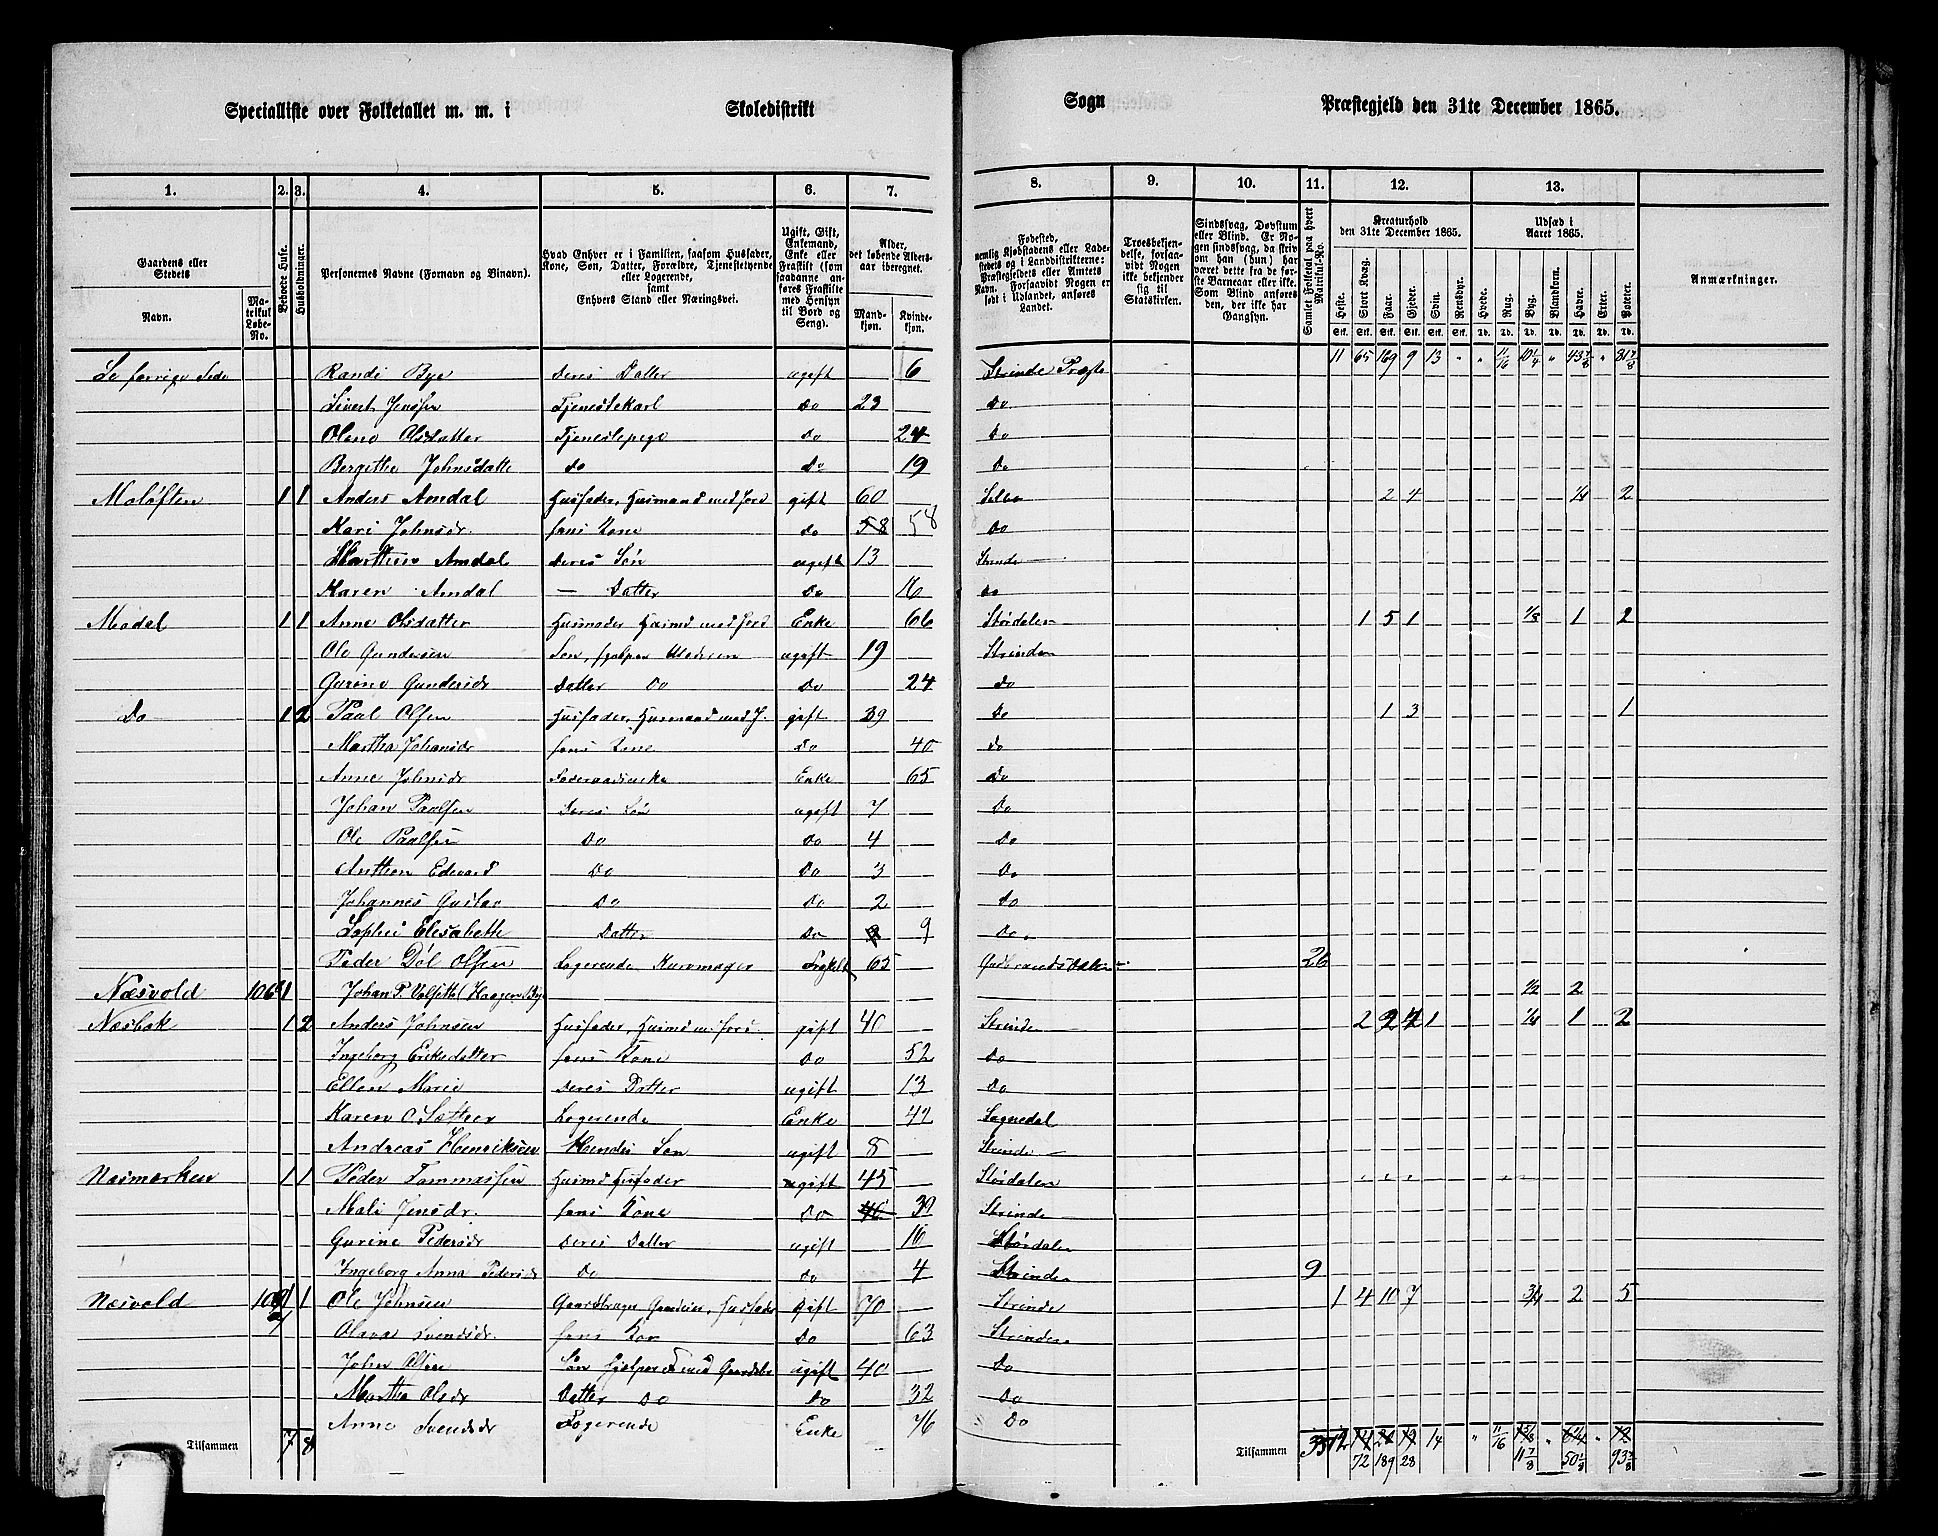 Specialliste over Folketallet m. m. i Skoledistrikt Sogn Præstegjeld den 31te December 1865.
1. 2. 3. 4. 5. 6. 7. 8. 9. 10. 11. 12. 13.
Gaardens eller Stedets Navn. Matrikul Løbe-No. Beboede Huse. Husholdninger. Personernes Navne (Fornavn og Binavn). Hvad Enhver er i Familien, saasom Husfader, Kone, Søn, Datter, Forældre, Tjenestetyende eller Logerende, samt Enhvers Stand eller Næringsvei. Ugift, Gift, Enkemand, Enke eller Fraskilt (som saadanne anføres Fraskilte med Hensyn til Bord og Seng). Alder, det løbende Alders-aar iberegnet. Mandkjøn. Kvindekjøn.
Fødested, nemlig Kjøbstadens eller Ladestedets og i Landdistrikterne: Præstegjeldets eller Amtets Navn. Forsaavidt Nogen er født i Udlandet, anføres Landet. Troesbekjendelse, forsaavidt Nogen ikke bekjender sig til Statskirken. Sindssvag, Døvstum eller Blind. Er Nogen sindssvag, da skrives om han (hun) har været dette fra de første Barneaar eller ikke. Som Blind anføres den, der ikke har Gangsyn. Samlet Folketal paa hvert Matrikul-No. Kreaturhold den 31te December 1865. Udsæd i Aaret 1865. Anmærkninger.
Heste. Stort Kvæg. Faar. Gjeder. Svin. Rensdyr. Hvede. Rug. Byg. Blandkorn. Havre. Erter. Poteter.
Stk. Stk. Stk. Stk. Stk. Stk. Td. Td. Td. Td. Td. Td. Td.
11 65 169 9 13 " " 11/16 10 1/4 " 43 7/8 " 81 7/8
Se forrige Side Randi Bye Deres Datter ugift 6 Strinde Præste
Sivert Jensen Tjenestekarl Do 23 Do
Olene Olsdatter Tjenestepige Do 24 Do
Bergithe Johnsdatte Do Do 19 Do
Moløften 1 1 Anders Amdal Husfader, Husmand med Jord gift 60 Selbo 2 4 1/4 2
Kari Johnsdr. hans Kone Do 58 58 Do
Marthin Amdal Deres Søn ugift 13 Strinde
Karen Amdal — Datter Do 16 Do
Modal 1 1 Anne Olsdatter Husmoder Husmd med Jord Enke 66 Stördalen 1 5 1 1/8 1 2
Ole Gundersen Søn, hjelper Moderen ugift 19 Strinden
Gurine Gundersdr Datter Do Do 24 Do
Do 1 2 Paal Olsen Husfader, Husmand med J. gift 39 Do 1 3 1
Martha Johansdr hans Kone Do 40 Do
Anne Johnsdr Enke 65 Do
Johan Paalsen Deres Søn ugift 7 Do
Ole Paalsen Do Do 4 Do
Anthon Edvard Do Do 3 Do
Johannes Gustav Do Do 2 Do
Sophie Elisabeth Datter Do 9 Do
Peder Döl Olsen Logerende Kurvmager Fraskilt 65 Gudbrandsdalen 26
Næsvold 106 1 Johan P. Haagen Bye 1/2 2
Næsbak 1 2 Anders Johnsen Husfader, Husmd m. Jord gift 40 Strinde 2 2 1 1/4 1 2
Ingeborg Eriksdatter hans Kone Do 52 Do
Ellen Marie Deres Datter ugift 13 Do
Karen O. Sætter Logerende Enke 42 Sognedal
Andreas Henriksen Hendes Søn ugift 8 Strinde
Næsmarken 1 1 Peder Tommassen Husmd Husfader gift 45 Stördalen
Mali Jensdr. hans Kone Do 46 39 Strinde
Gurine Pedersdr Deres Datter ugift 16 Stördalen
Ingeborg Anna Pedersdr Do Do 4 Strinde 9
Næsvold 1 1 Ole Johnsen Gaardbruger, Husfader gift 70 Strinde 1 4 10 7 3/4 2 5
Olava Svendsdr. hans Kone Do 63 Strinde
John Olsen Søn hjelper ugift 40 Do
Martha Olsdr Datter Do Do 32 Do
Anne Svendsdr Logerende Enke 76 Do
Tilsammen 7 8 Tilsammen 35 12 14 19 14 " 11/16 " " 12
72 189 28 11 7/8 50 1/8 93 7/8